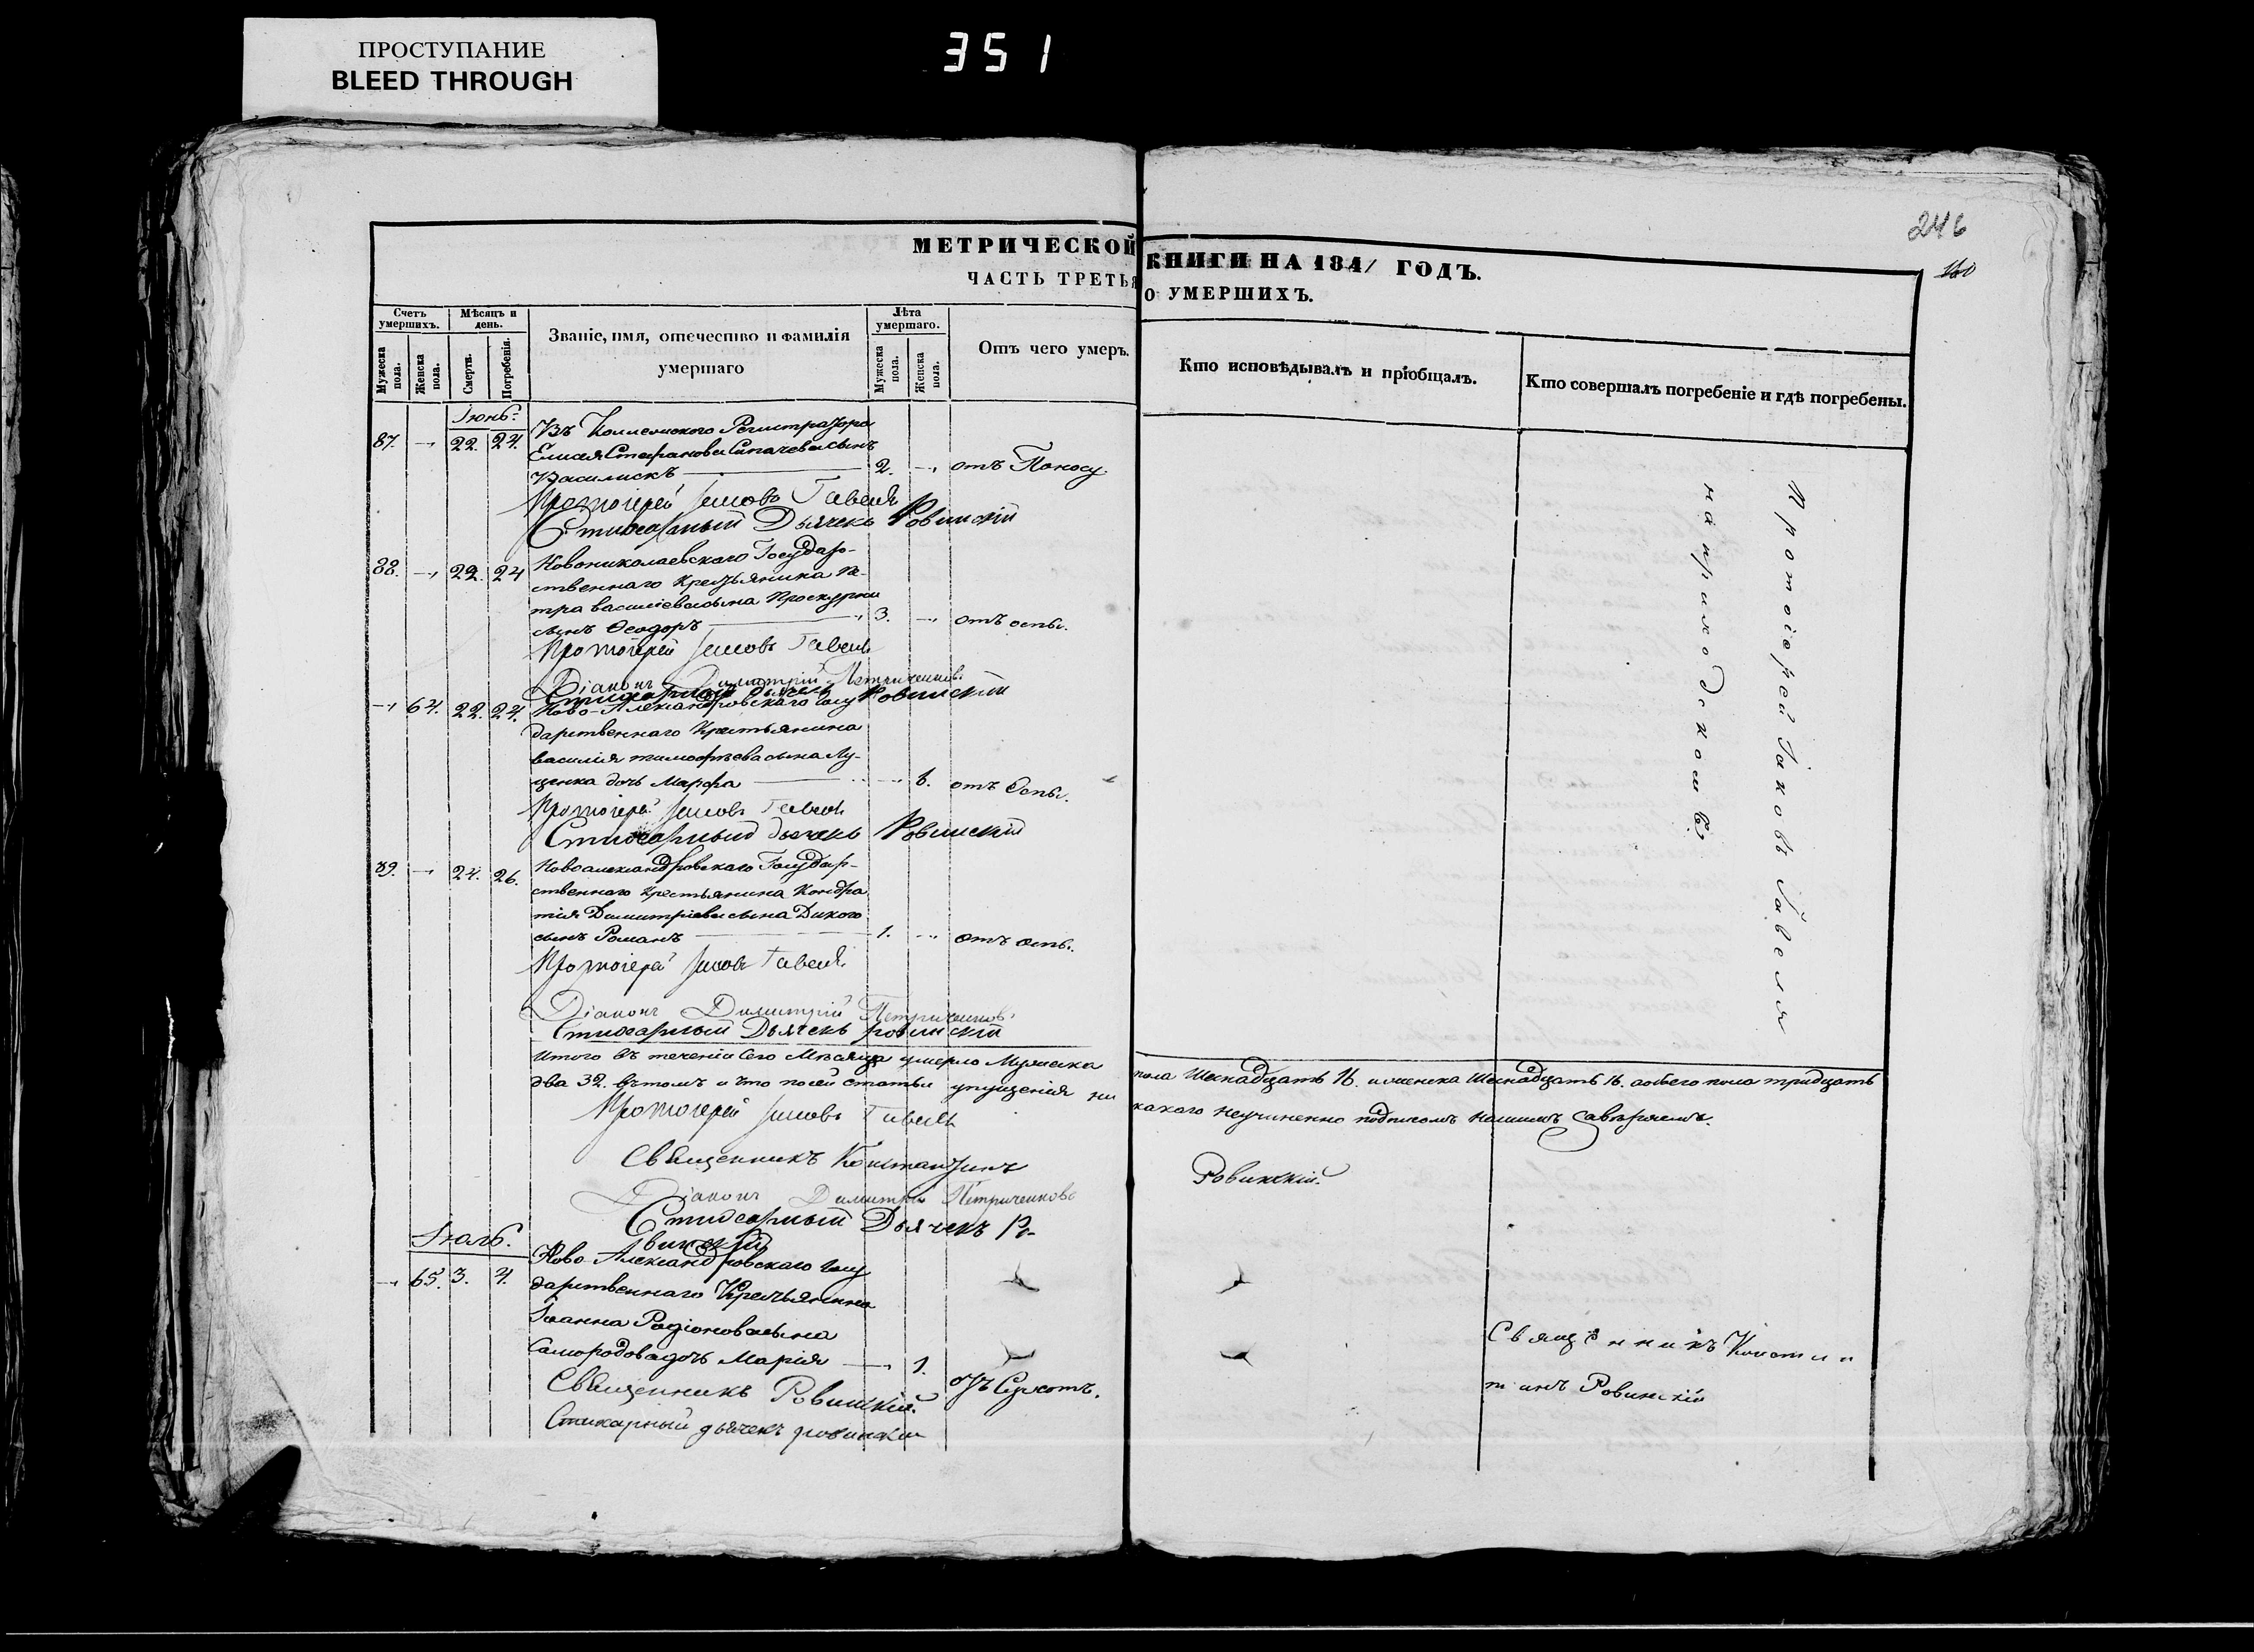 ПРОСТУПАНИЕ
BLEED THROUGH
351
246
160
МЕТРИЧЕСКОЙ КНИГИ НА 1841 ГОДЪ.
ЧАСТЬ ТРЕТЬЯ О УМЕРШИХЪ.
Счетъ умершихъ.
Мужеска пола.
Женска пола.
Мѣсяцъ и день.
Смерти.
Погребенія.
Званіе, имя, отечество и фамилія умершаго
Лѣта умершаго.
Мужеска пола.
Женска пола.
Отъ чего умеръ.
Кто исповѣдывалъ и пріобщалъ.
Кто совершалъ погребеніе и гдѣ погребены.
Іюнь
87. 22. 24. Коллежскаго Регистратора
Елисея Стефанова сынъ
Василискъ 2. отъ Поносу
Протоіерей Іаковъ Гавеля
Стихарный Дьячекъ Ровинскій
88. 22. 24 Новониколаевскаго Государ-
ственнаго Крестьянина Пе-
тра Василіева сына
сынъ Ѳеодоръ 3. отъ оспы.
Протоіерей Іаковъ Гавеля
Діаконъ Димитрій Петриченковъ
Стихарный Дьячекъ Ровинскій
64. 22. 24. Ново-Александровскаго Госу
дарственнаго Крестьянина
Василія Тимофѣева сына Лу-
ценка дочь Марфа отъ Оспы.
Протоіерей Іаковъ Гавеля
Стихарный дьячекъ Ровинскій
89. 24. 26. Новоалександровскаго Государ-
ственнаго Крестьянина Кондра
тія Димитріева сына Дикого
сынъ Романъ 1. отъ оспы.
Протоіерей Іаковъ Гавеля
Діаконъ Димитрій Петриченковъ
Стихарный Дьячекъ Ровинскій
Протоіерей Іаковъ Гавеля
на приходском
Итого въ теченіи сего Мѣсяца умерло Мужеска пола Шеснадцать 16. и женска Шеснадцать 16. обоего пола тридцать
два 32. въ томъ и что по сей статьи упущенія ни какого неучиненно подписомъ нашимъ
Протоіерей Іаковъ Гавеля
Священникъ Константинъ Ровинскій.
Діаконъ Димитрій Петриченковъ
Стихарный Дьячекъ Ро-
винскій
Іюль.
65. 3. 4. Ново-Александровскаго Госу
дарственнаго Крестьянина
Іоанна Родіонова сына
Самородова дочь Марія 1. отъ Сухотъ.
Священникъ Ровинскій.
Стихарный дьячекъ Ровинскій
Священникъ Констан
тинъ Ровинскій